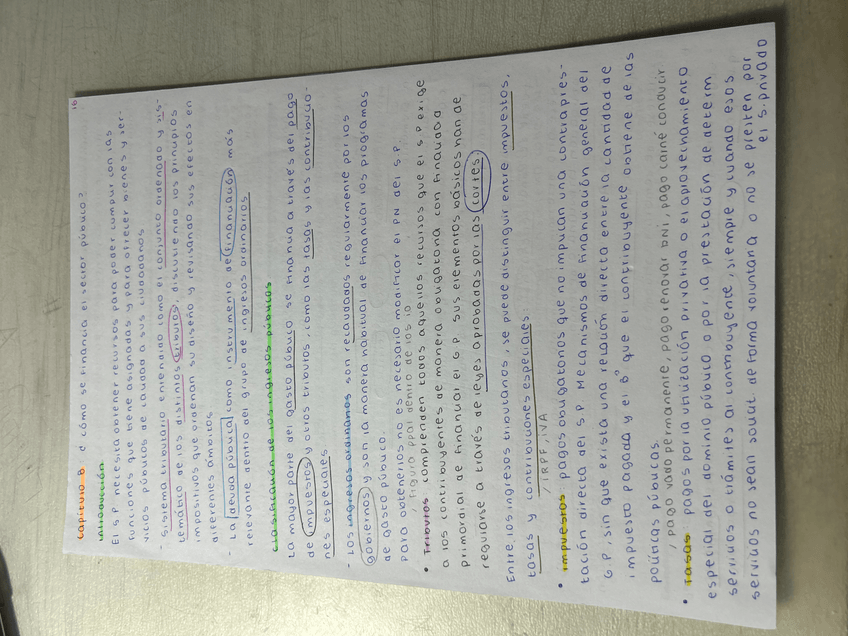 16
Capítulo 8. ¿cómo se financia el sector público?
Introducción
El S.P necesita obtener recursos para poder cumplir con las
funciones que tiene asignadas y para ofrecer bienes y ser-
vicios públicos de calidad a sus ciudadanos
- Sistema tributario entendido como el conjunto ordenado y sis-
temático de los distintos tributos, discutiendo los principios
impositivos que ordenan su diseño y revisando sus efectos en
diferentes ámbitos
- La deuda pública como instrumento de financiación más
relevante dentro del grupo de ingresos ordinarios
Clasificación de los ingresos públicos
La mayor parte del gasto público se financia a través del pago
de impuestos y otros tributos, como las tasas y las contribucio-
nes especiales
- Los ingresos ordinarios son recaudados regularmente por los
gobiernos y son la manera habitual de financiar los programas
de gasto público.
Para obtenerlos no es necesario modificar el PN del S.P.
/ Figura ppal dentro de los IO
• Tributos comprenden todos aquellos recursos que el S.P exige
a los contribuyentes de manera obligatoria con finalidad
primordial de financiar el G.P. Sus elementos básicos han de
regularse a través de leyes aprobadas por las cortes
Entre los ingresos tributarios, se puede distinguir entre impuestos,
tasas y contribuciones especiales
/ IRPF, IVA
• Impuestos pagos obligatorios que no implican una contrapres-
tación directa del S.P. Mecanismos de financiación general del
G.P, sin que exista una relación directa entre la cantidad de
impuesto pagada y el bº que el contribuyente obtiene de las
políticas públicas.
/ pago vado permanente, pago renovar DNI, pago carné conducir
• Tasas pagos por la utilización privativa o el aprovechamiento
especial del dominio público o por la prestación de determ
servicios o trámites al contribuyente, siempre y cuando esos
servicios no sean solicit de forma voluntaria o no se presten por
el S. privado